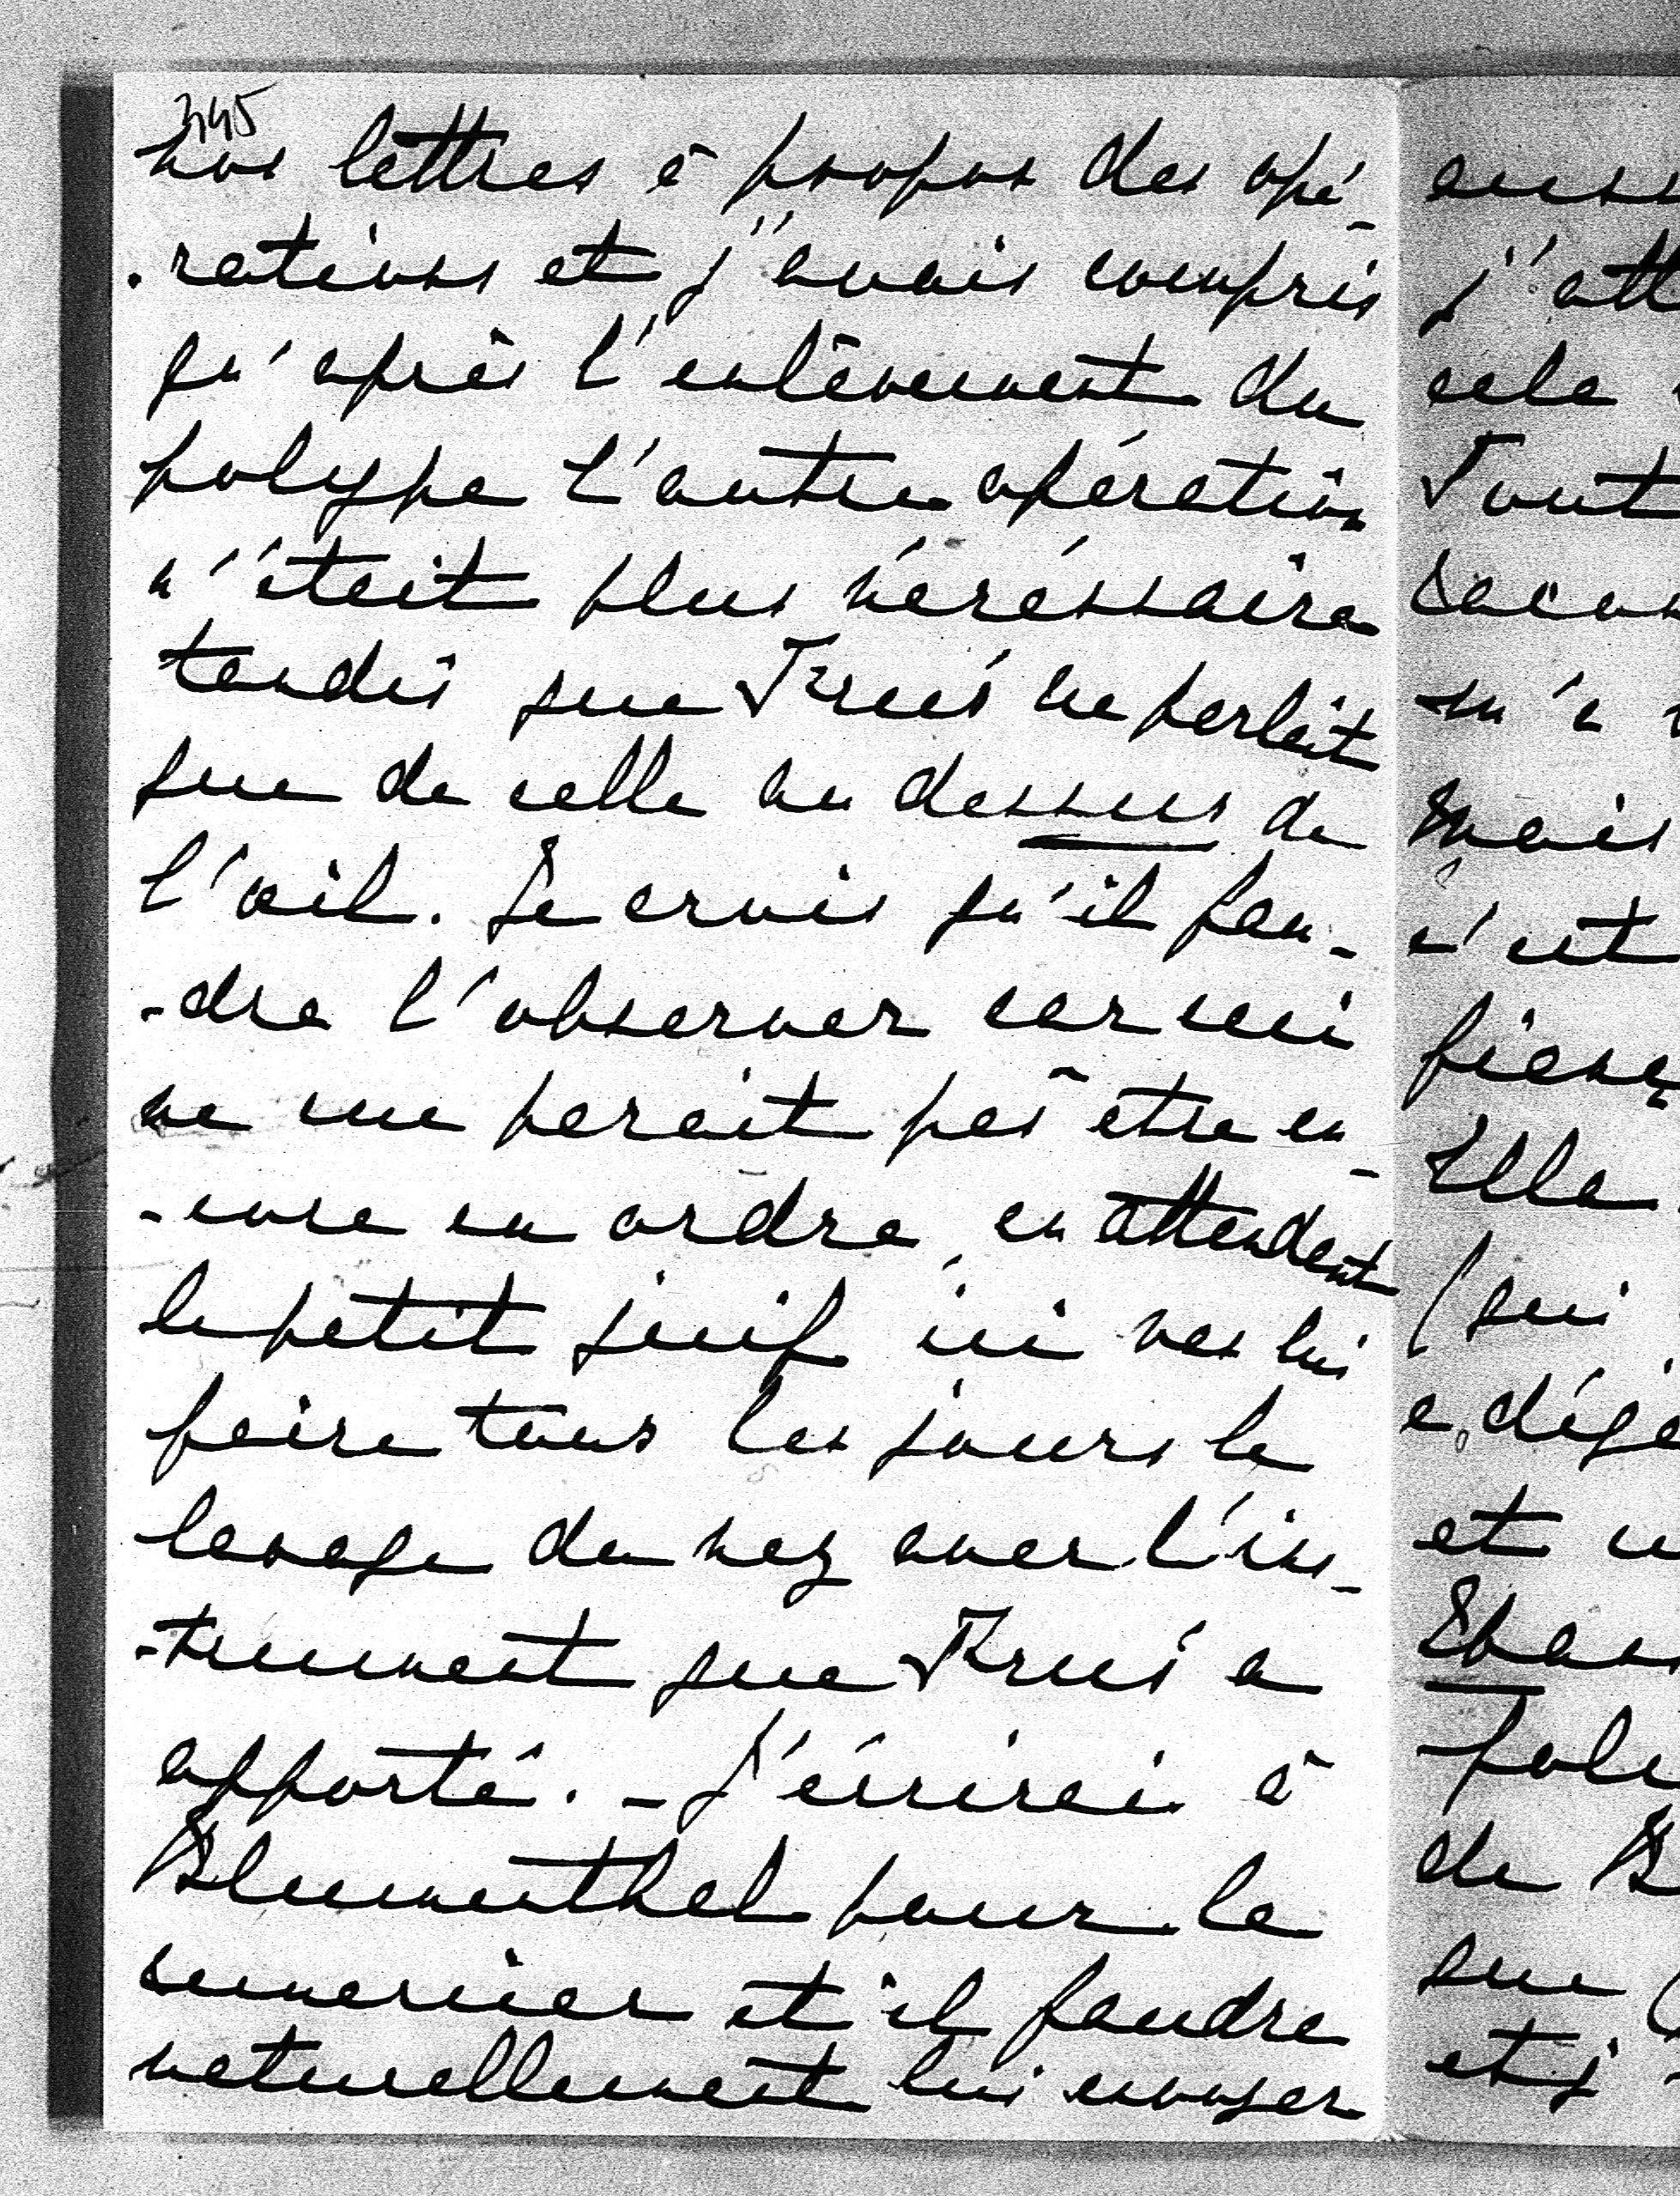 345
nos lettres à propos des opé-
-rations et j'avais compris
qu'après l'enlèvement du
polype l'autre opération
n'était plus nécéssaire
tandis que ne parlait
que de celle au dessus de
l'œil. Je crois qu'il fau-
-dra l'observer car ceci
ne me parait pas être en-
-core en ordre, en attendant
le petit juif ici va lui
faire tous les jours le
lavage du nez avec l'ins-
-trument que a
apporté. - J'écrirai à
Blumenthal pour le
remercier et il faudra
naturellement lui envoyer
j'att
cela
Tout
m'a
Mais
c'est
fianç
Elle
(qui
a dége
et
de B
que
et j